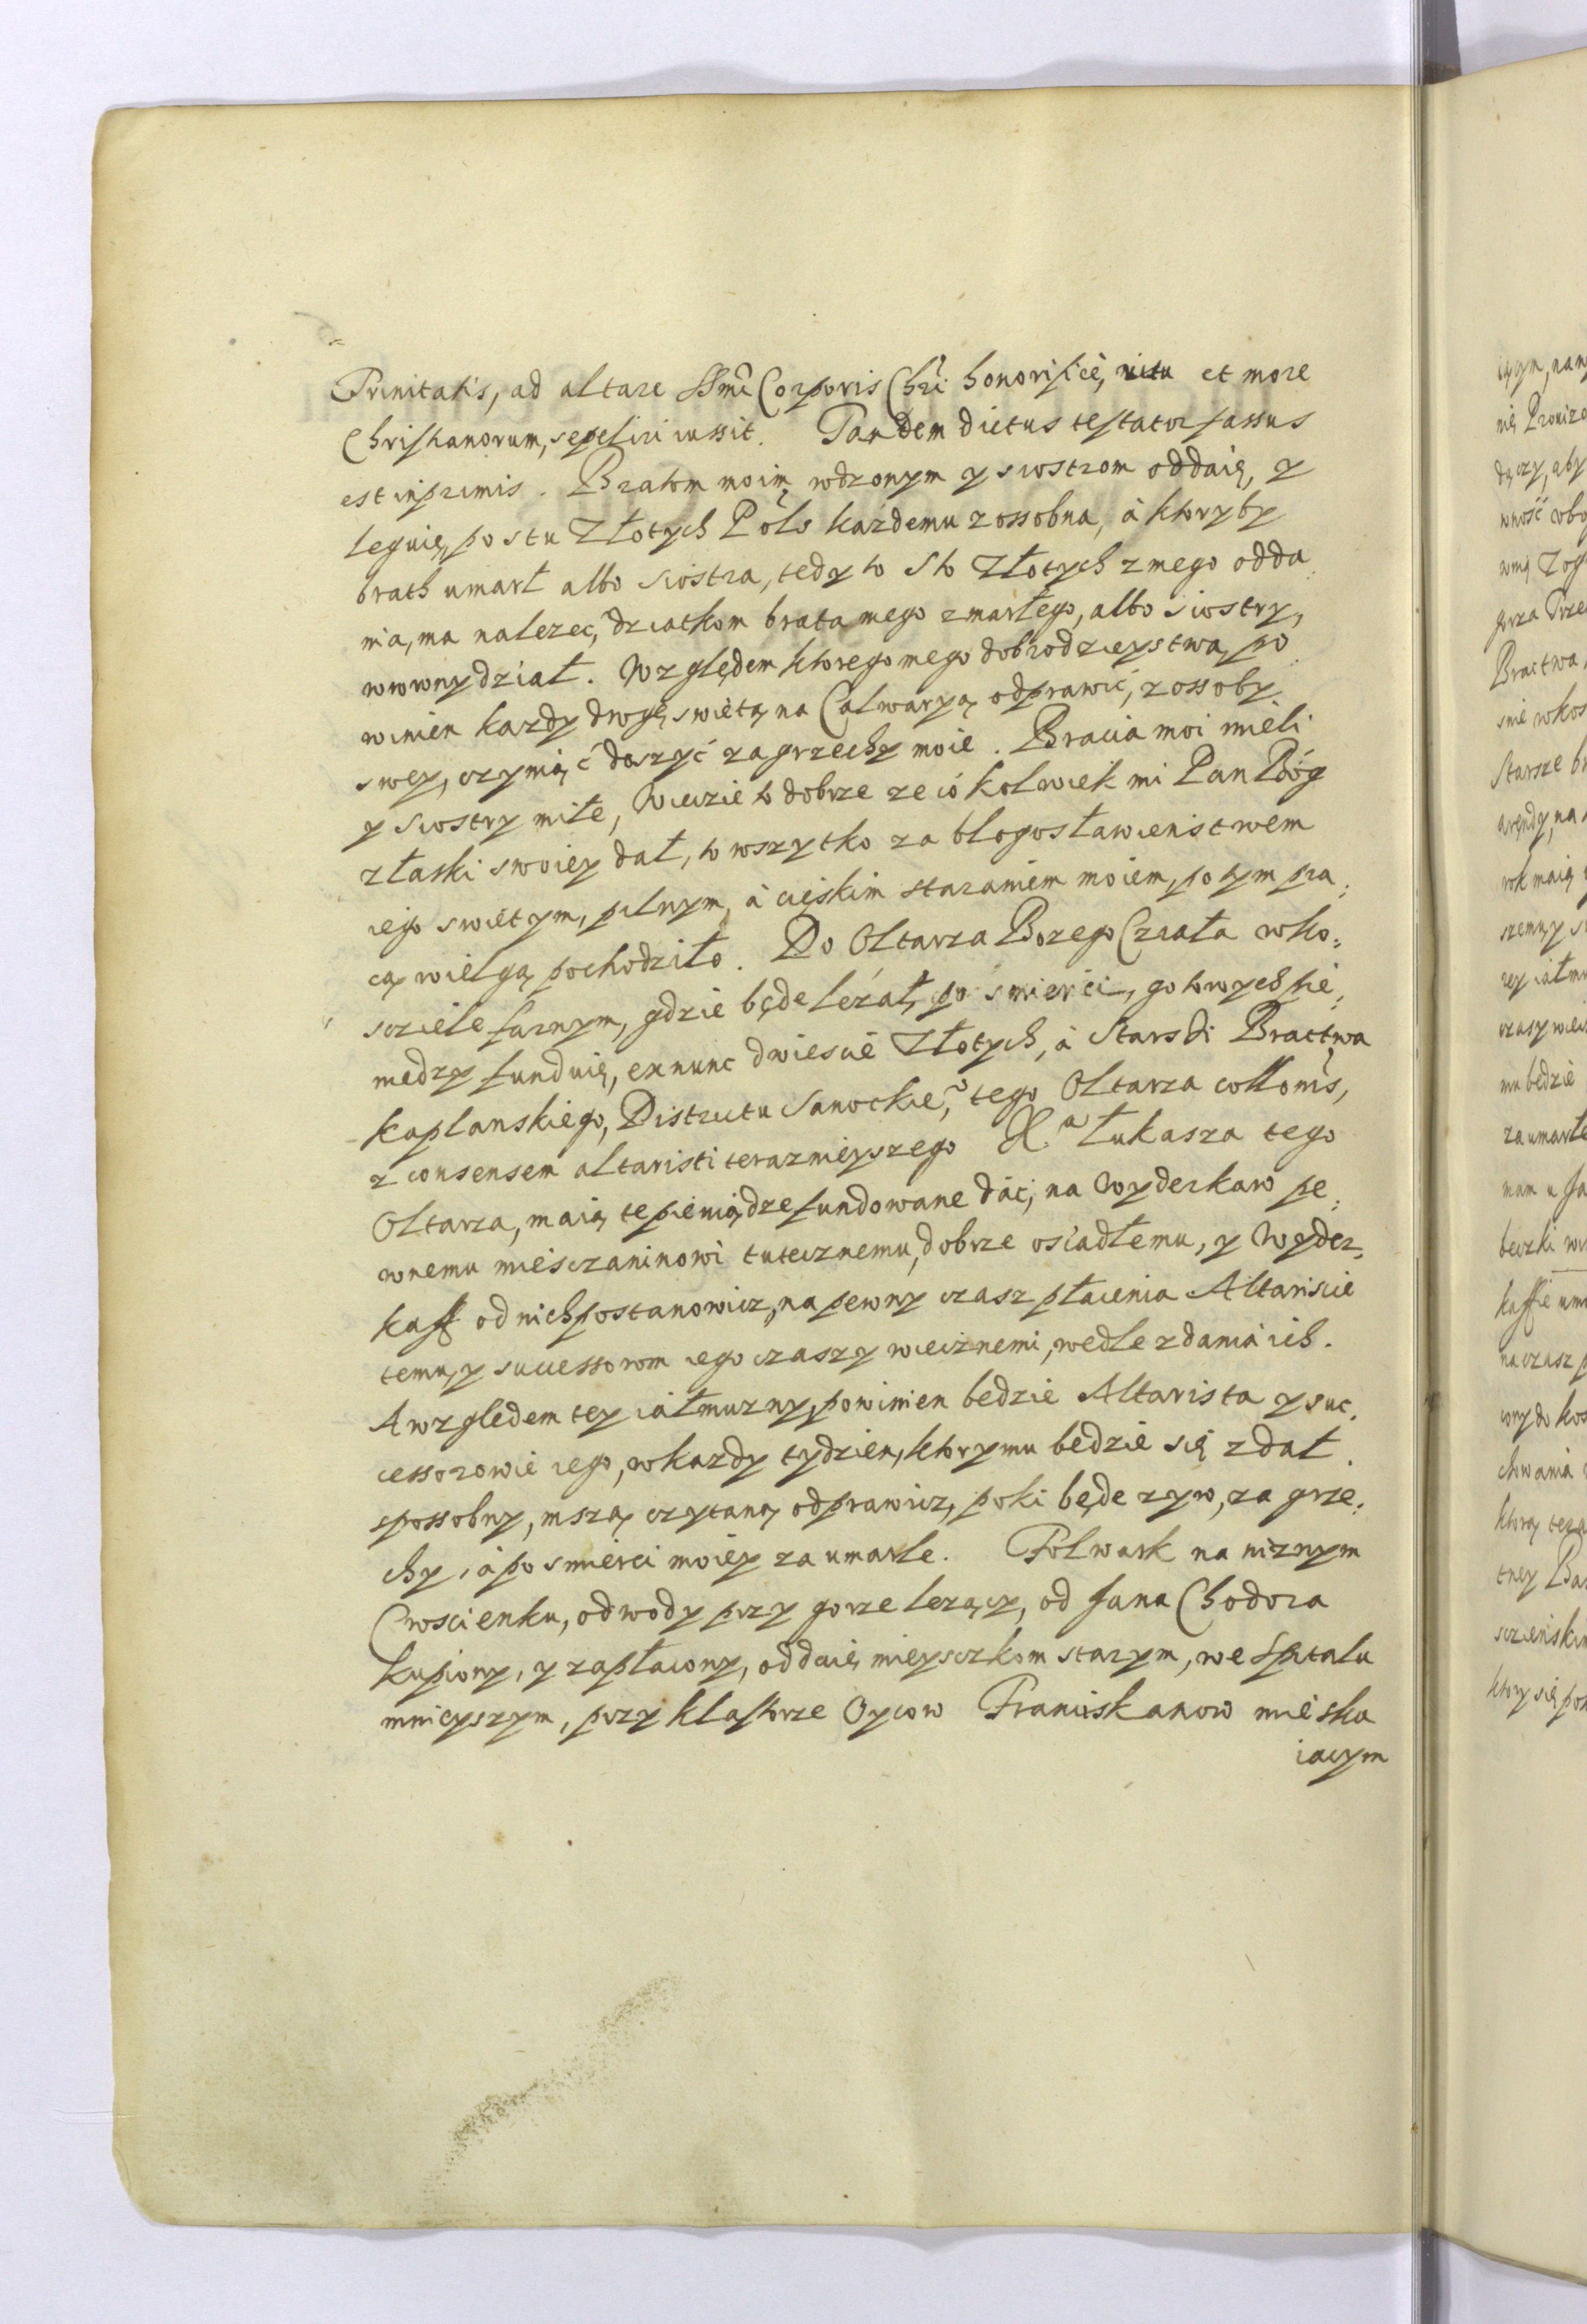 Trinitatis, ad altare SSmi Corporis Chri honorifice, ritu et more
Christianorum, sepeliri iussit. Tandem dictus testator fassus
est inprimis. Bratom moim rodzonym y siostrom oddaię, y
leguię, po stu Złotych Pols każdemu z ossobna, à ktoryby
brath umarł albo siostra, tedy to sto Złotych z mego odda
nia, ma należeć, dziatkom brata mego zmarłego, albo siostry,
wrowny dział. Względem ktorego mego dobrodzieystwa, po
winien kazdy drogę swiętą na Calwaryą odprawić, z ossoby
swey, czyniąć doszyć za grzechy moie. Bracia moi mieli
y Siostry miłe, Wiedzie to dobrze ze co kolwiek mi Pan Bóg
z łaski swoiey dał, to wszytko za błogosławienistwem
iego swiętym, pilnym, à cięskim staraniem moiem, po tym pra,
cą wielgą pochodziło. Do Oltarza Bozego Cziała wko,
sciele farnym, gdzie będe leżał, po smierci, gotowych pie,
niedzy funduię, ex nunc dwiescie Złotych, à Starsi Bractwa
kaplanskiego, Districtu Sanockie, tego Oltarza collom's,
z consensem altaristi terazniejszego X.a Łukasza tego
Oltarza, maią te pieniądze fundowane dać, na Wyderkaw pe,
wnemu miesczaninowi tutecznemu, dobrze osiadłemu, y Wyder,
kaff od nich postanowicz, na pewny czasz płacenia Altariscie
temu, y successorom iego czaszy wiecznemi, wedle zdania ich.
A względem tey iałmuzny, powinien bedzie Altarista y suc,
cessorowie iego, wkazdy tydzien, ktory mu bedzie się zdał
spossobny, mszą czytaną odprawicz, poki będe zyw, za grze,
chy, à po smierci moiey za umarłe. Folwark na niznym
Croscienku, od wody przy gorze leząci, od Jana Chodora
kupiony, y zapłacony, oddaię mieysczkom starym, we Spitalu
mnieyszym, przy klasztorze Oycow Franciskanow mieska
iacym